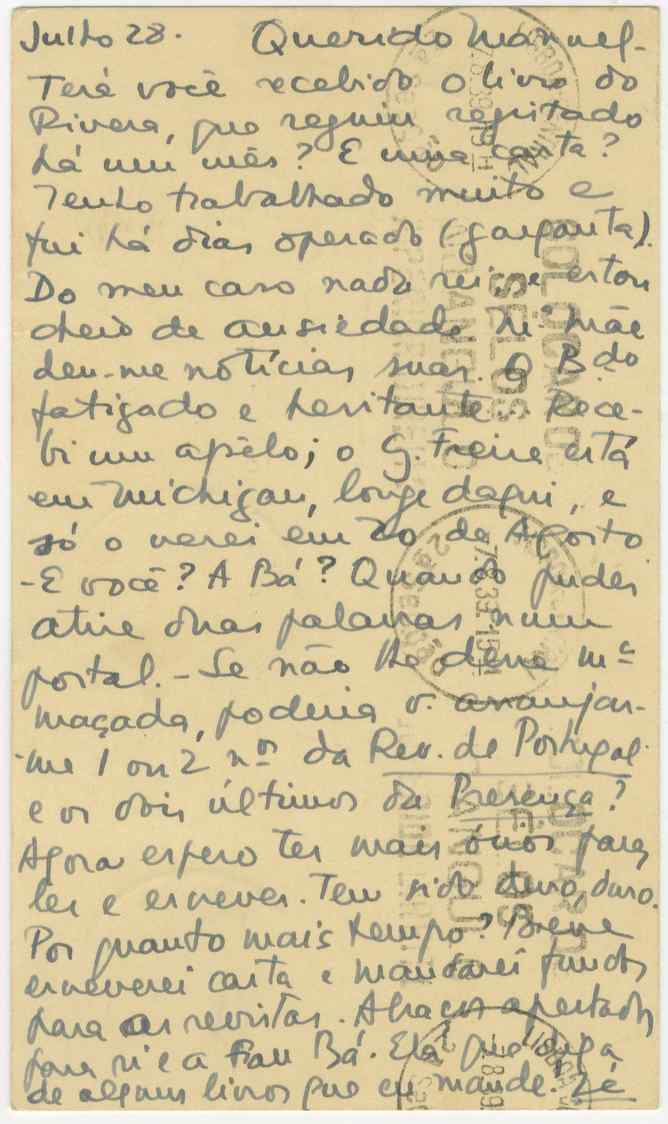 Julho 28. Querido Manuel-
Terá você recebido o livro do
Rivera, que seguiu registado
há um mês? E uma carta?
Tenho trabalhado muito e
fui há dias operado (garganta).
Do meu caso nada sei e estou
cheio de ansiedade. Mª mãe
deu-me notícias suas. O B.do
fatigado e hesitante. Rece-
bi um apêlo; o G. Freire está
em Michigan, longe daqui, e
só o verei em 20 de Agosto
-E você? A Bá? Quando puder
atire duas palavras num
postal. - Se não lhe dera mª
maçada, poderia v. arranjar-
-me 1 ou 2 nos da Rev. de Portugal
e os dois últimos da Presença?
Agora espero ter mais ócios para
ler e escrever. Tem sido duro, duro.
Por quanto mais tempo? Breve
escreverei carta e mandarei fundos
para as revistas. Abraços apertados
para si e a Frau Bá. Ela que diga
de alguns livros que eu mande. Zé
COLOCAÇÃO DE
SÊLOS
LISBOA CENTRAL
2ª SECÇÃO